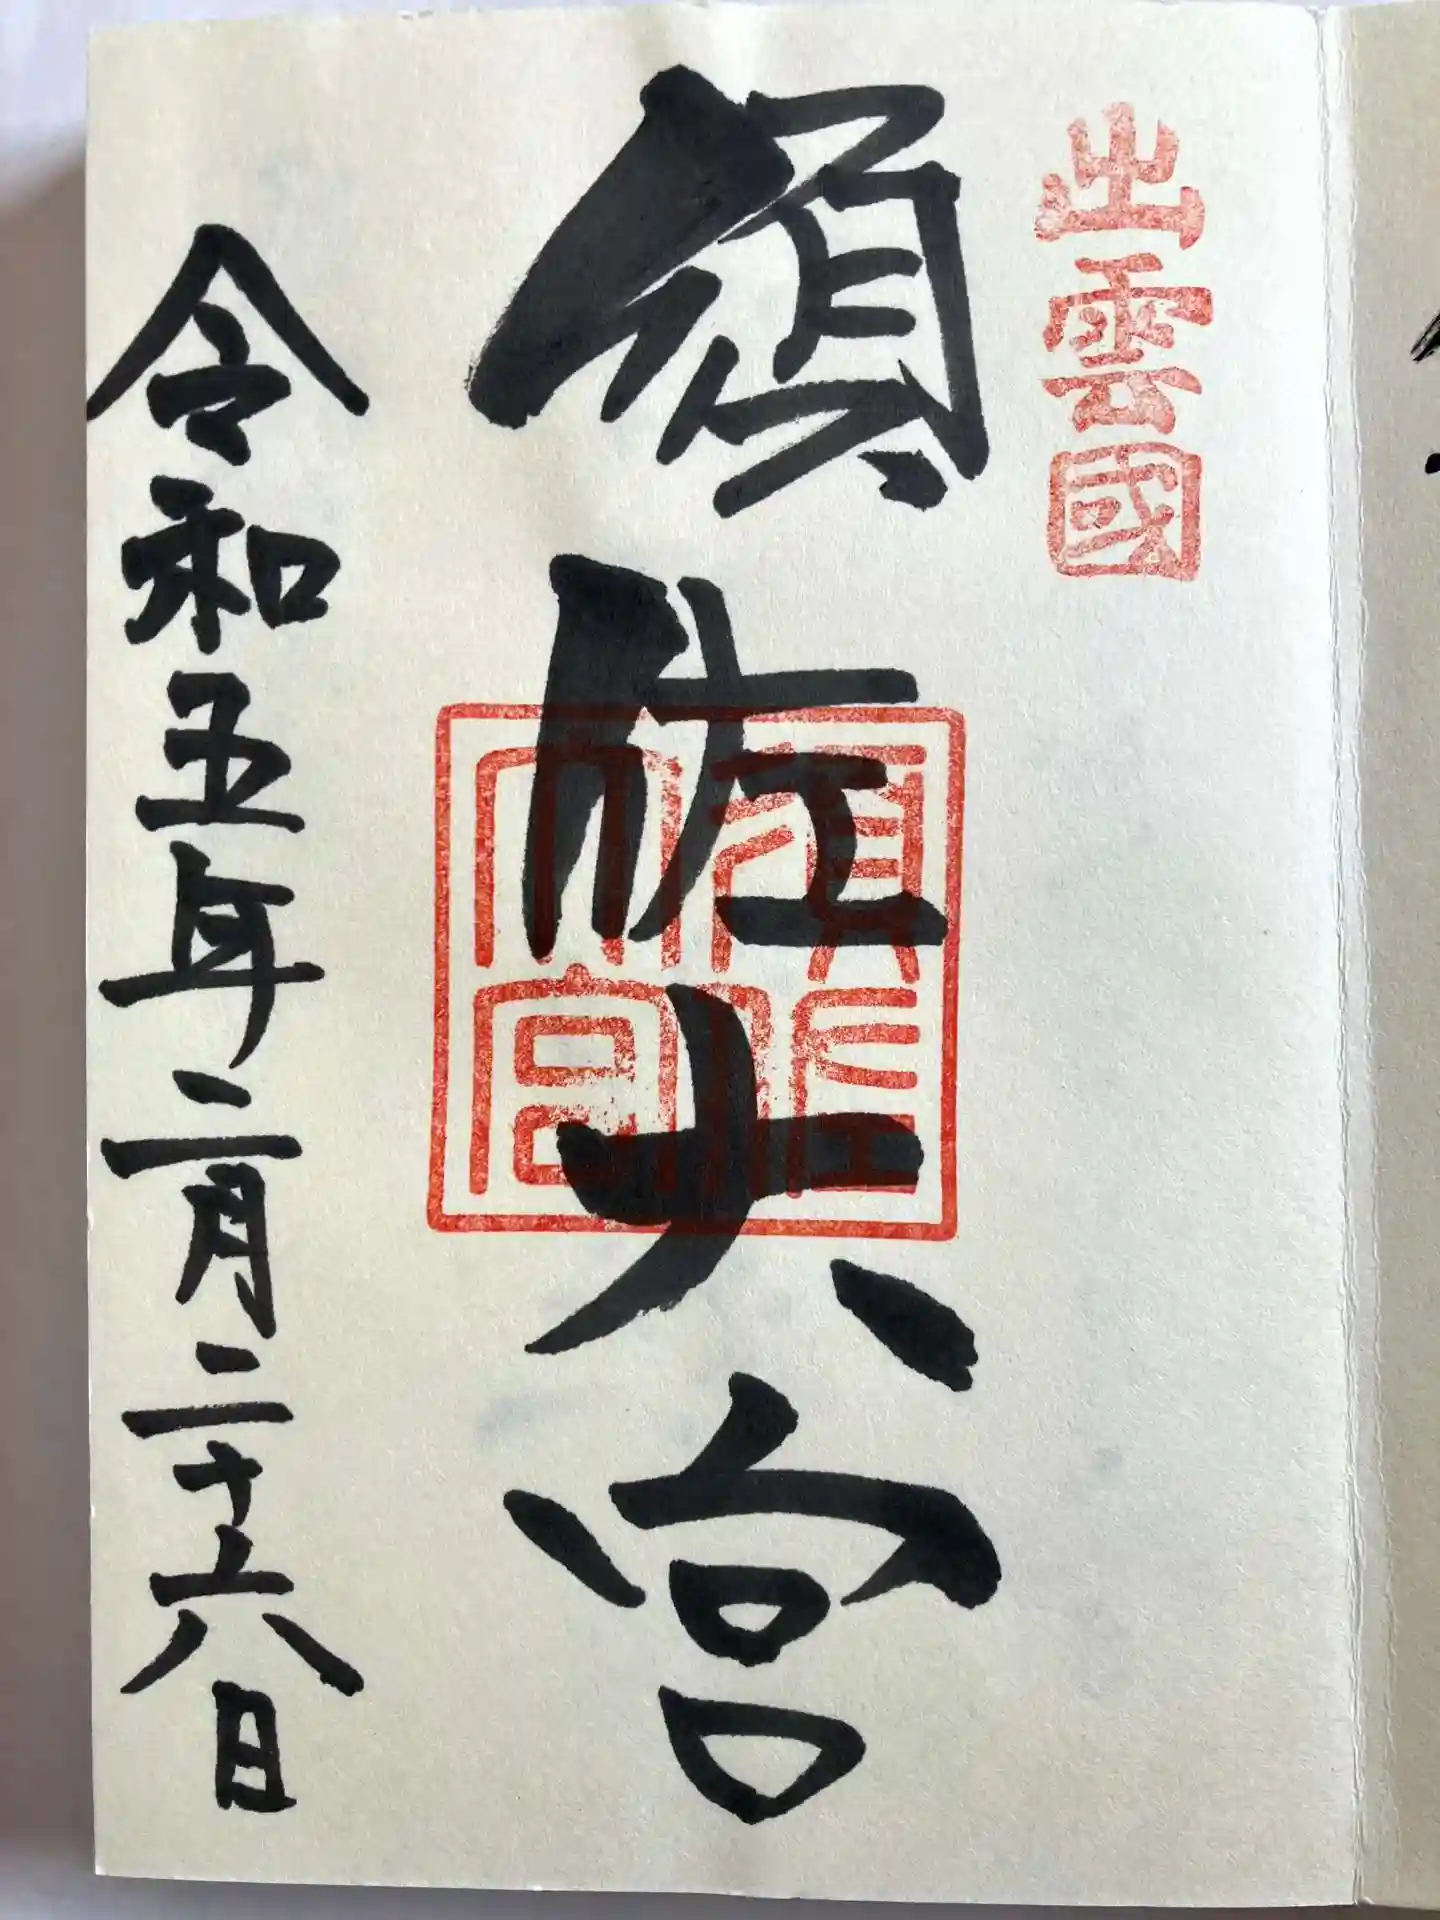 出雲國
須佐大宮
須佐大宮
令和五年二月二十六日